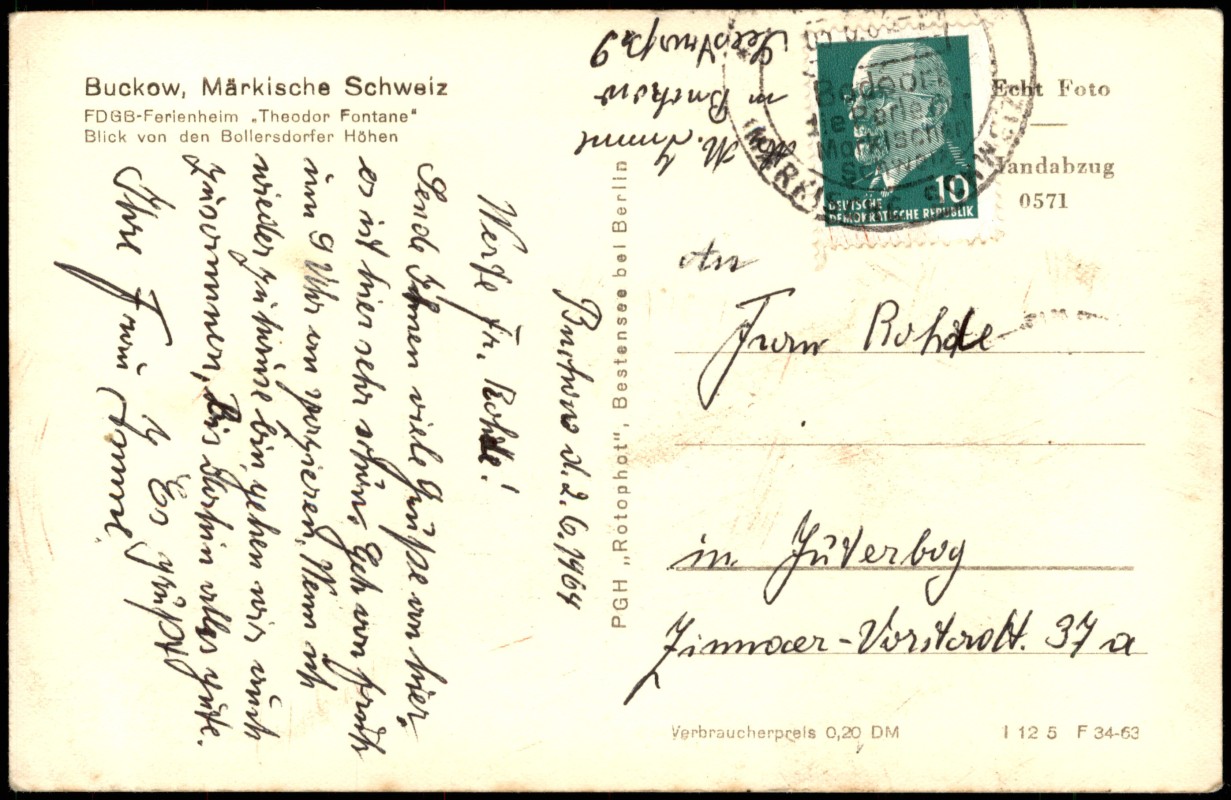 Buckow, Märkische Schweiz
FDGB-Ferienheim „Theodor Fontane"
Blick von den Bollersdorfer Höhen
M. Immel
in Buckow
Buckow d. 2.6.1964
Werte Fr. Rohde!
Sende Ihnen viele Grüße von hier,
es ist hier sehr schön. Geh von früh
um 9 Uhr an spazieren. Wenn ich
wieder zu hause bin, gehen wir auch
zusammen, bis dorthin alles gute.
Es grüßt
Ihre Frau Immel
PGH „Rotophot", Bestensee bei Berlin
Echt Foto
Handabzug
0571
Badeort
Perle
Märkischen
Schweiz
MÄRKISCHE SCHWEIZ
10
DEUTSCHE
DEMOKRATISCHE REPUBLIK
An
Frau Rohde
in Jüterbog
Zinnaer-Vorstadt. 37 a
Verbraucherpreis 0,20 DM
I 12 5 F 34-63